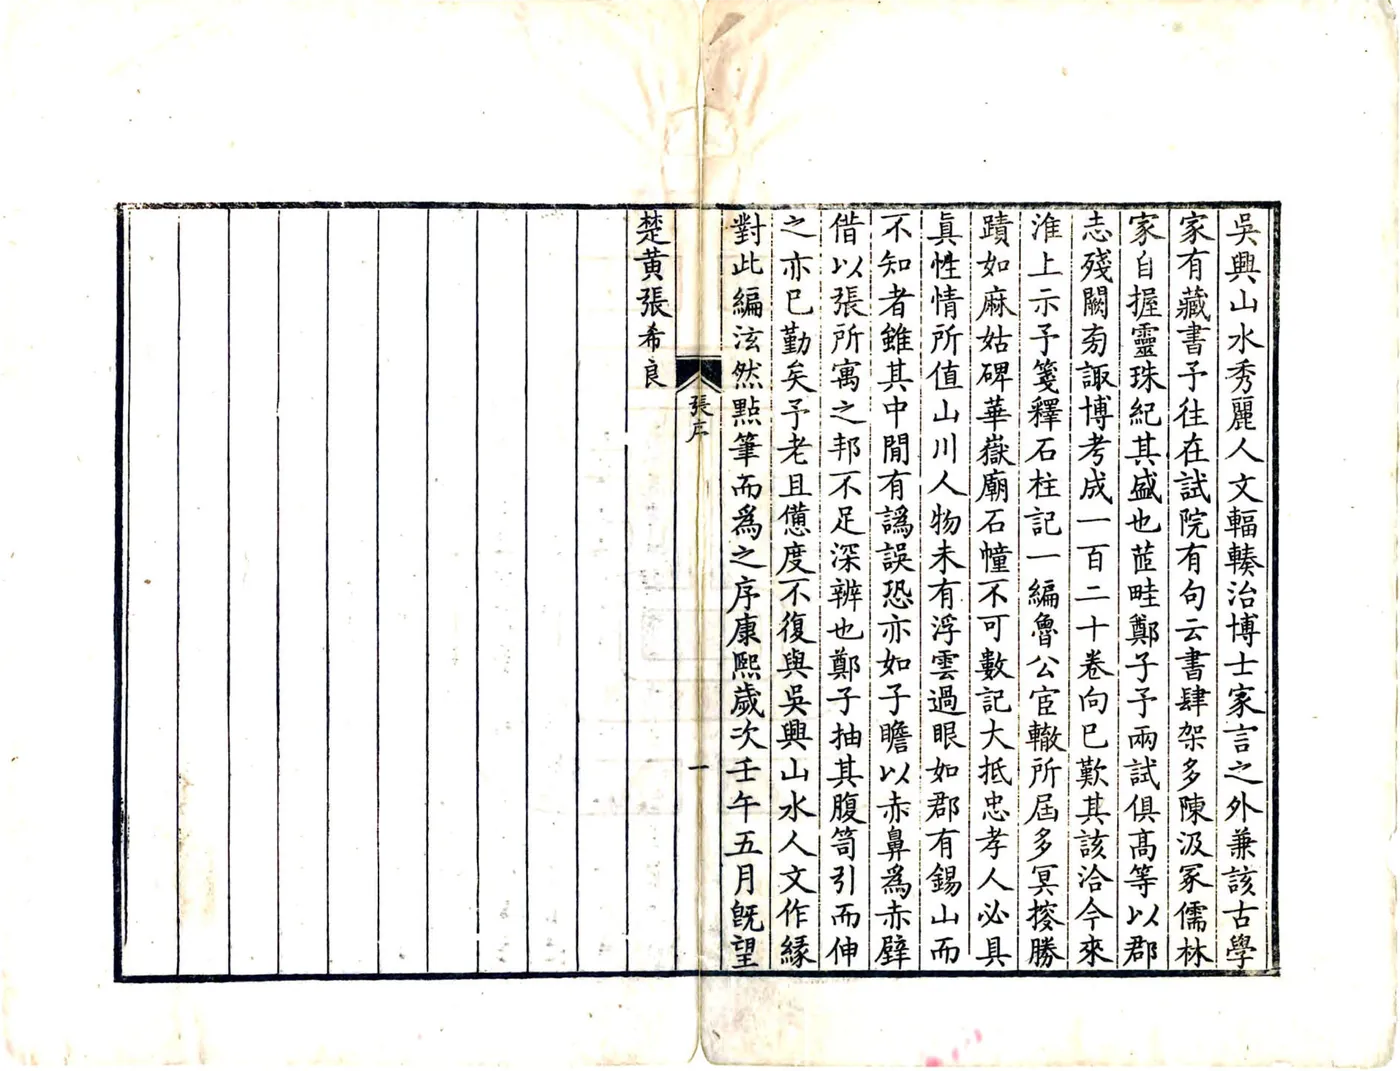 吳興山水秀麗人文輻輳治博士家言之外兼該古學
家有藏書予往在試院有句云書肆架多陳汲冢儒林
家自握靈珠紀其盛也芷畦鄭子予兩試俱高等以郡
志殘闕旁諏博考成一百二十卷向已歎其該洽今來
淮上示予箋釋石柱記一編魯公宦轍所屆多冥搜勝
蹟如麻姑碑華嶽廟石幢不可數記大抵忠孝人必具
眞性情所值山川人物未有浮雲過眼如郡有錫山而
不知者雖其中閒有譌誤恐亦如子瞻以赤鼻爲赤壁
借以張所寓之邦不足深辨也鄭子抽其腹笥引而伸
之亦已勤矣予老且憊度不復與吳興山水人文作緣
對此編泫然點筆而爲之序康熙歲次壬午五月旣望
楚黄張希良
張序
一